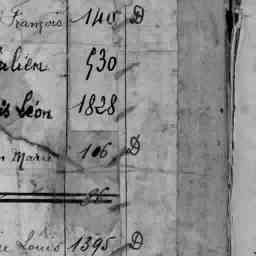 François 140 D
ulien 530
is Léon 1828
n Marie 106 D
96
re Louis 1395 D